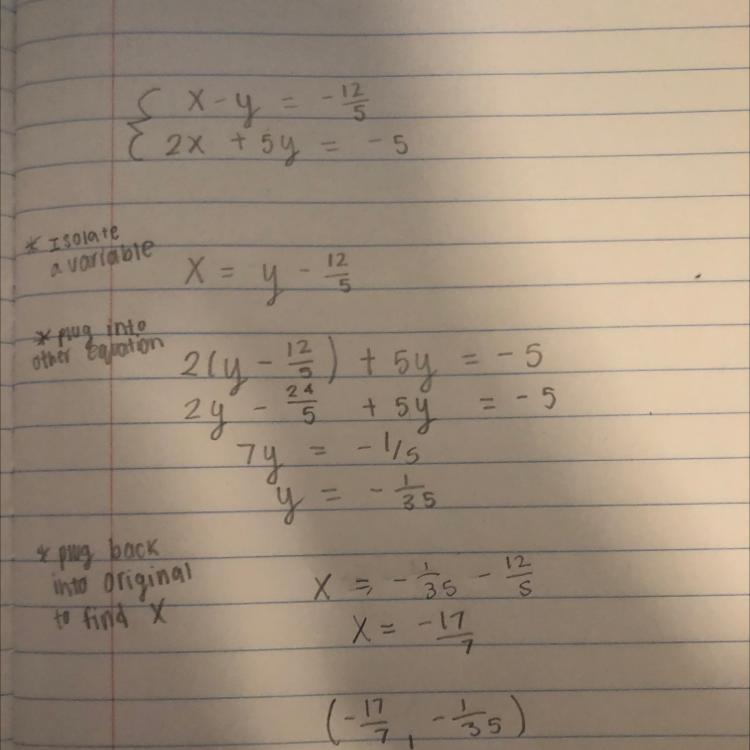 x - y = -12/5
2x + 5y = -5
* Isolate
a variable
x = y - 12/5
* plug into
other Equation
2(y - 12/5) + 5y = -5
2y - 24/5 + 5y = -5
7y = -1/5
y = -1/35
* plug back
into original
to find X
x = -1/35 - 12/5
x = -17/7
(-17/7, -1/35)